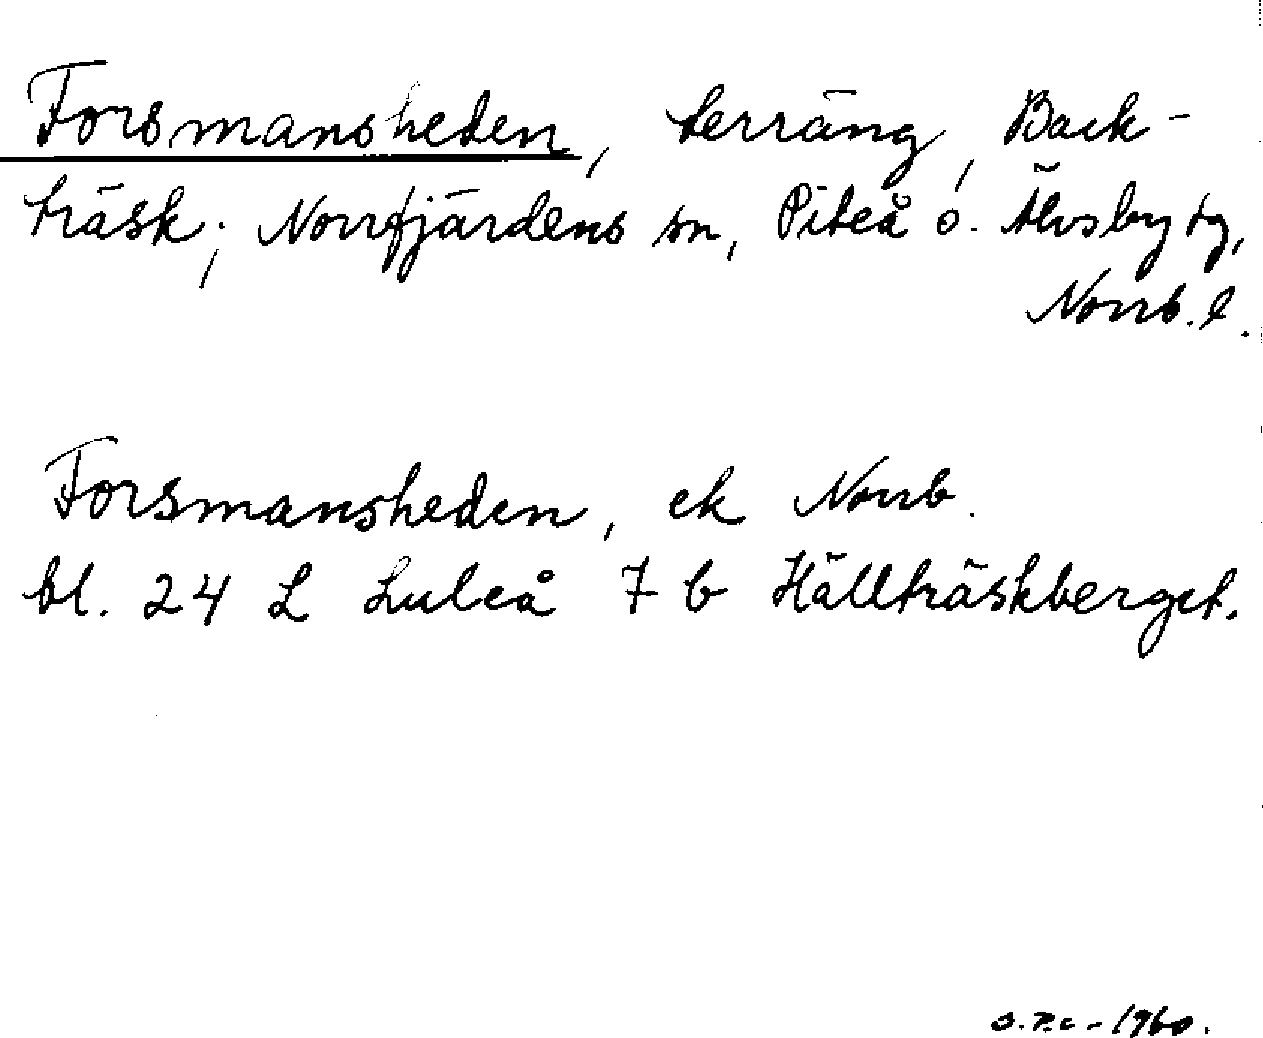 Forsmansheden, terräng, Back-
träsk; Norrfjärdens sn, Piteå o. Älvsby tg,
Norrb. l.
Forsmansheden, ek Norrb.
bl. 24 L Luleå 7 b Hällträskberget.
1960.